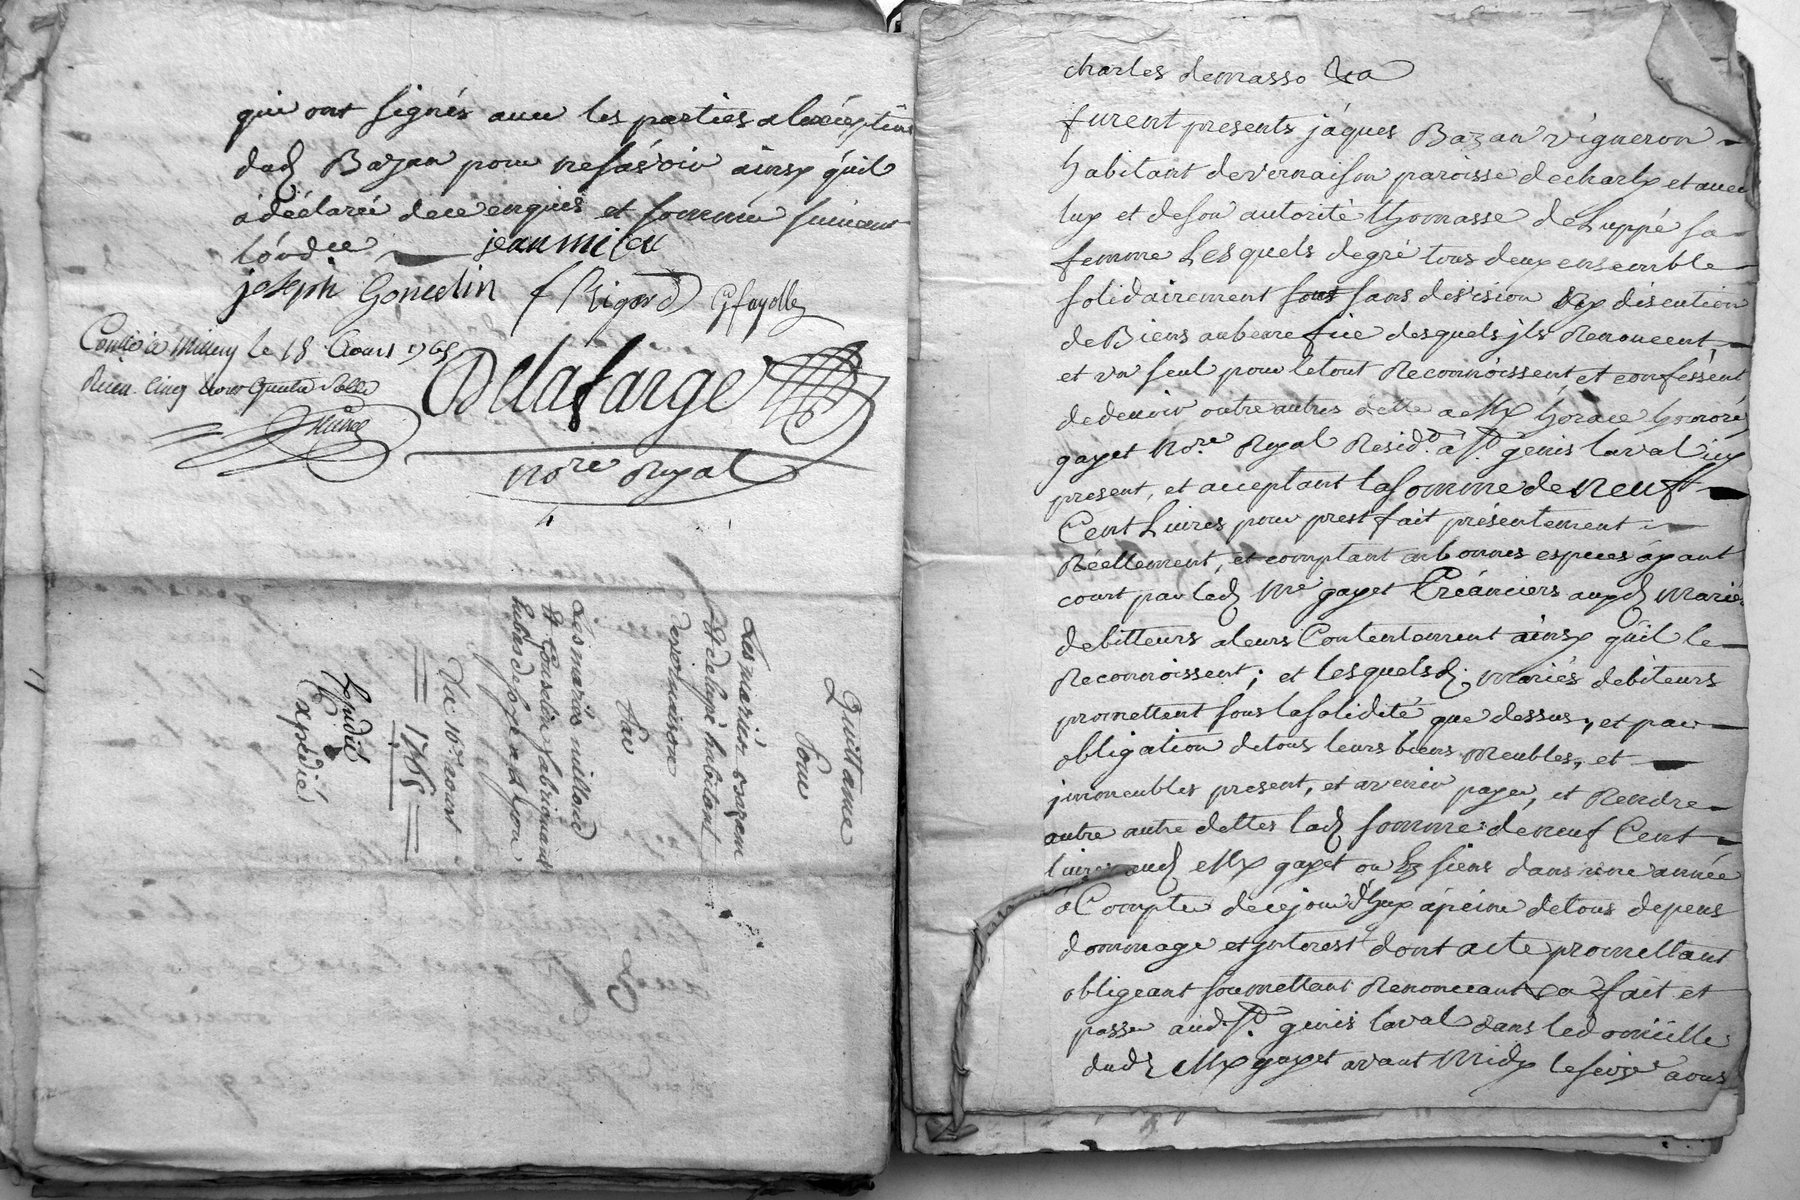 qui ont signés avec les parties a lexception
dud Bazan pour ne sàvoir ainsy quil
a déclaré de ce enquis et sommé suivant
lordce jean
joseph Goncelin f Rigord Gfayolle
à Millery le 18 aoust 1765
cinq
Delafarge
nore Royal
Quittance
Pour
Les mariés Bazan
et delupé habitant
de vernaison
Par
Les mariés millard
et Goncelin fabriquant
de soye a Lyon
Du 10e aoust
1765
Expédié
Expédié
charles demasso &a
furent presents jâques Bazan vigneron
habitant de vernaison paroisse de charly et avec
luy et de son autorité thomasse de Luppé sa
femme Lesquels de gré tous deux ensemble
solidairement sans division ny discution
de Biens au benefice desquels jls Renoncent
et un seul pour le tout Reconnoissent et confessent
de devoir outre autres dette a Mre horace honoré
gayet Nore Royal Residt à St genis laval icy
present, et acceptant la somme de neuf
Cent Livres pour prest fait présentement
Réellement, et comptant en bonnes especes àyant
court par led Mre gayet Créanciers auxd mariés
debitteurs a leurs Contentement ainsy quil le
Reconnoissent; et lesquels d. mariés debiteurs
promettent sous la solidité que dessus, et par
obligation de tous leurs biens meubles, et
jmmeubles present, et avenir payer, et Rendre
outre autre dettes lad somme de neuf Cent
livres aud Mre gayet ou les siens dans une année
à Compter de ce jour d'huy à peine de tous depens
dommage et jnterest dont acte promettant
obligeant soumettant Renonceant &a fait et
passé aud St genis laval dans le domicille
dud Mre gayet avant Midy le seize aoust